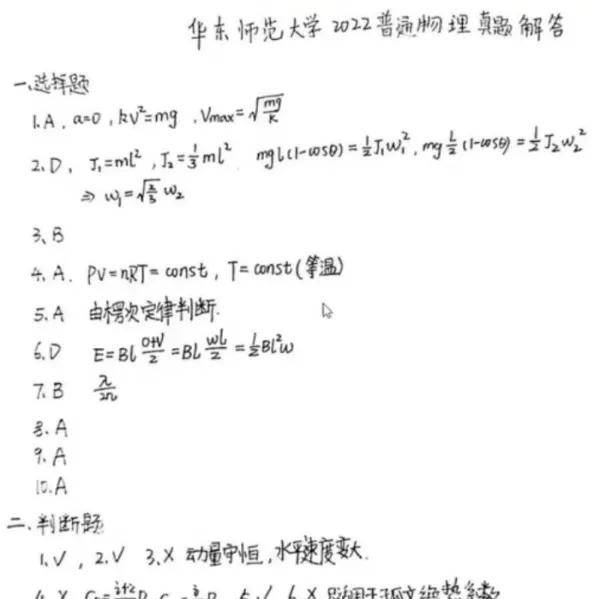 华东师范大学2022普通物理真题解答
一、选择题
1. A. a=0, kv²=mg, Vmax=√(mg/k)
2、D, J₁=ml², J₂=⅓ml² mgl(1-cosθ)=½J₁w₁², mg l/2 (1-cosθ)=½J₂w₂²
⇒ w₁=√(2/3) w₂
3、B
4、A. PV=nRT=const, T=const(等温)
5、A 由楞次定律判断.
6、D E=Bl (0+V)/2=Bl wl/2=½Bl²w
7、B λ/2n
8、A
9、A
10、A
二、判断题
1、√, 2、√ 3、× 动量守恒, 水平速度变大.